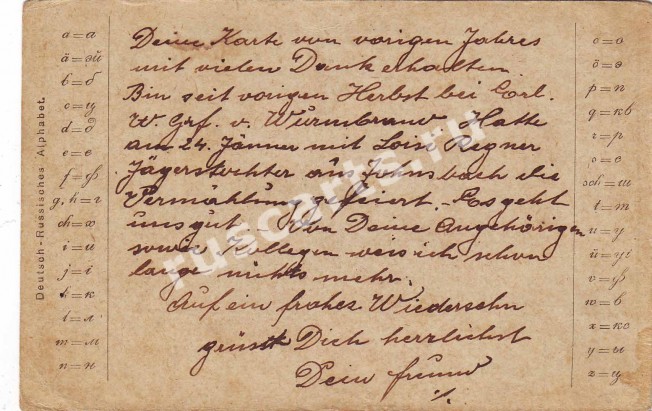 Deutsch-Russisches Alphabet.
a = a
ä = эй
b = б
c = ц
d = д
e = е
f = ф
g, h = г
ch = х
i = и
j = i
k = к
l = л
m = м
n = н
Deine Karte von vorigen Jahres
mit vielen Dank erhalten.
Bin seit vorigen Herbst bei
W. Grf. v. Wurmbrand. Hatte
am 24. Jänner mit Loisi Regner
Jägerstochter aus Johnsbach die
Vermählung gefeiert. - Es geht
uns gut - von Deine Angehörigen
sowie Kollegen weis ich schon
lange nichts mehr.
Auf ein frohes Wiedersehn
grüsst Dich herzlichst
Dein freund
o = о
ö = э
p = п
q = кв
r = р
s = с
sch = ш
t = т
u = у
v = ф
w = в
x = кс
y = ы
z = ц
ruscarts.ru